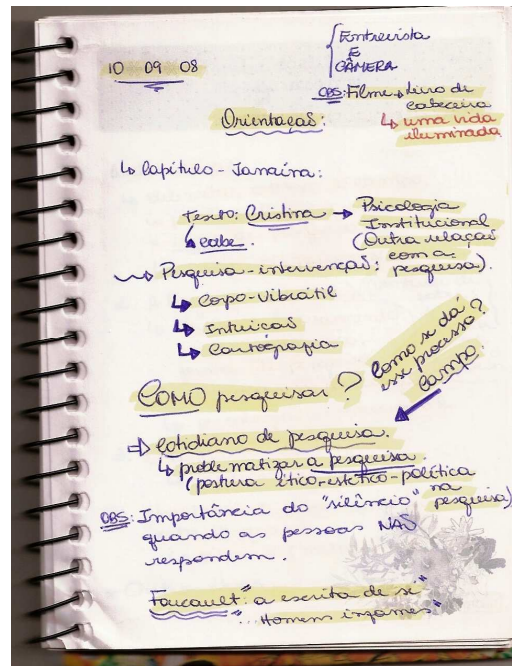 10 09 08
Entrevista
E
CÂMERA
OBS: Filme → Livro de
cabeceira
↳ uma vida
iluminada
Orientação:
↳ Capítulo - Janaína:
Texto: Cristina → Psicologia
Institucional
(Outra relação
com a
pesquisa).
cabe.
Pesquisa-intervenção:
↳ Copo-Vibrátil
↳ Intuição
↳ Cartografia
Como se dá
esse processo?
Campo.
COMO pesquisar?
⇨ cotidiano de pesquisa.
↳ problematizar a pesquisa.
(postura ético-estético-política
na
pesquisa)
OBS: Importância do "silêncio"
quando as pessoas NÃO
respondem.
Foucault: "a escrita de si"
"... Homens infames"